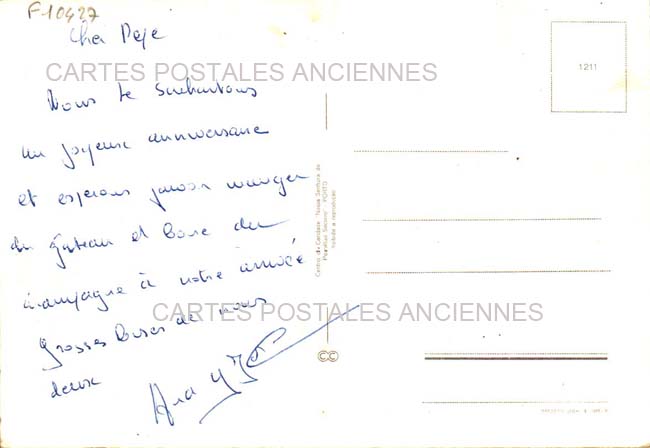 F10427
Cher Pepe
CARTES POSTALES ANCIENNES
1211
Nous te souhaitons
un joyeux anniversaire
et espérons pouvoir manger
du gâteau et boire du
champagne à notre arrivée
CARTES POSTALES ANCIENNES
Grosses bises de nous
deux
Centro de Caridade "Nossa Senhora do
Perpétuo Socorro" PORTO
Proibida a reprodução
CC